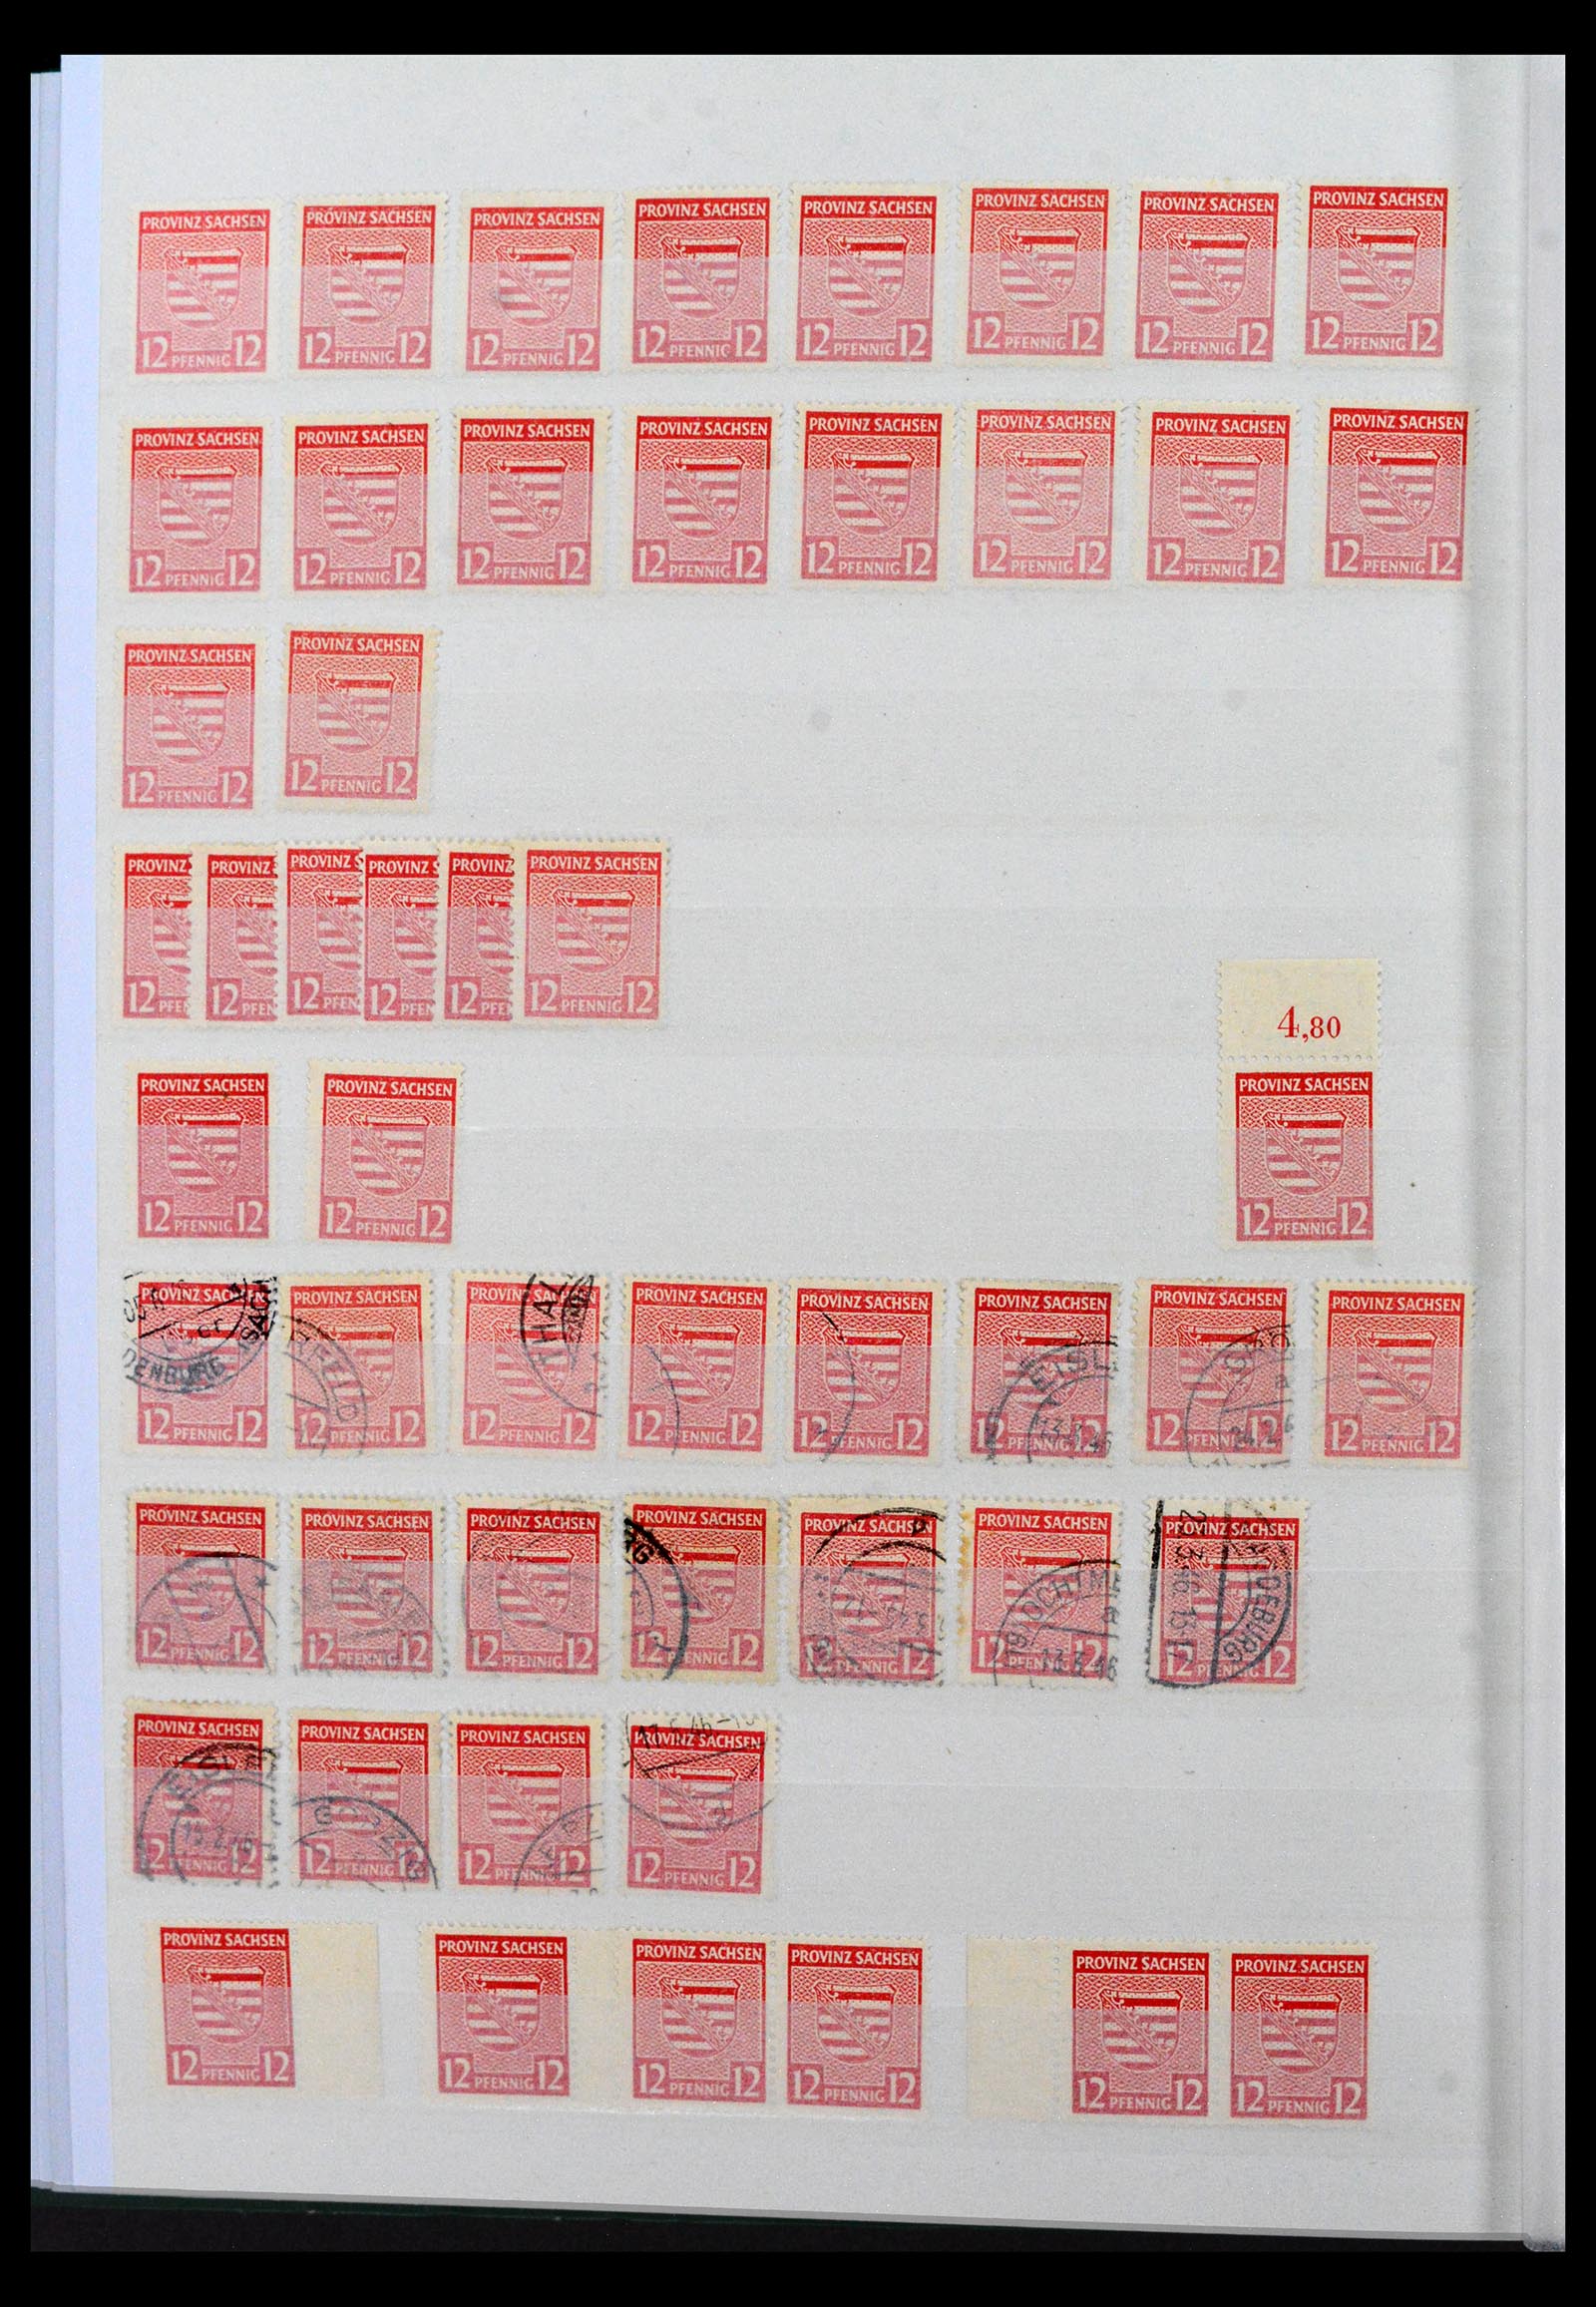 PROVINZ SACHSEN PROVINZ SACHSEN PROVINZ SACHSEN PROVINZ SACHSEN PROVINZ SACHSEN PROVINZ SACHSEN PROVINZ SACHSEN PROVINZ SACHSEN
12 PFENNIG 12 12 PFENNIG 12 12 PFENNIG 12 12 PFENNIG 12 12 PFENNIG 12 12 PFENNIG 12 12 PFENNIG 12 12 PFENNIG 12
PROVINZ SACHSEN PROVINZ SACHSEN PROVINZ SACHSEN PROVINZ SACHSEN PROVINZ SACHSEN PROVINZ SACHSEN PROVINZ SACHSEN PROVINZ SACHSEN
12 PFENNIG 12 12 PFENNIG 12 12 PFENNIG 12 12 PFENNIG 12 12 PFENNIG 12 12 PFENNIG 12 12 PFENNIG 12 12 PFENNIG 12
PROVINZ SACHSEN PROVINZ SACHSEN
12 PFENNIG 12 12 PFENNIG 12
PROVINZ PROVINZ PROVINZ S PROVINZ S PROVINZ PROVINZ SACHSEN
12 PFEN 12 PFEN 12 PFEN 12 PFEN 12 PFE 12 PFENNIG 12
4,80
PROVINZ SACHSEN PROVINZ SACHSEN PROVINZ SACHSEN
12 PFENNIG 12 12 PFENNIG 12 12 PFENNIG 12
PROVINZ SACHSEN PROVINZ SACHSEN PROVINZ SACHSEN PROVINZ SACHSEN PROVINZ SACHSEN PROVINZ SACHSEN PROVINZ SACHSEN PROVINZ SACHSEN
DENBURG
THAL
EISL
24.2.46
12 PFENNIG 12 12 PFENNIG 12 12 PFENNIG 12 12 PFENNIG 12 12 PFENNIG 12 12 PFENNIG 12 12 PFENNIG 12 12 PFENNIG 12
PROVINZ SACHSEN PROVINZ SACHSEN PROVINZ SACHSEN PROVINZ SACHSEN PROVINZ SACHSEN PROVINZ SACHSEN PROVINZ SACHSEN
RG
DEBURG
12 PFENNIG 12 12 PFENNIG 12 12 PFENNIG 12 12 PFENNIG 12 12 PFENNIG 12 12 PFENNIG 12 12 PFENNIG 12
PROVINZ SACHSEN PROVINZ SACHSEN PROVINZ SACHSEN PROVINZ SACHSEN
EISL
12 PFENNIG 12 12 PFENNIG 12 12 PFENNIG 12 12 PFENNIG 12
PROVINZ SACHSEN PROVINZ SACHSEN PROVINZ SACHSEN PROVINZ SACHSEN PROVINZ SACHSEN PROVINZ SACHSEN
12 PFENNIG 12 12 PFENNIG 12 12 PFENNIG 12 12 PFENNIG 12 12 PFENNIG 12 12 PFENNIG 12